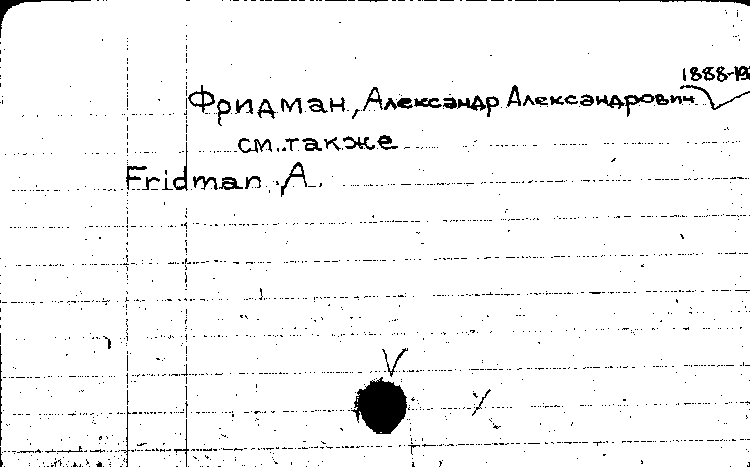 1888-192
Фридман, Александр Александрович
см. также
Fridman, A.